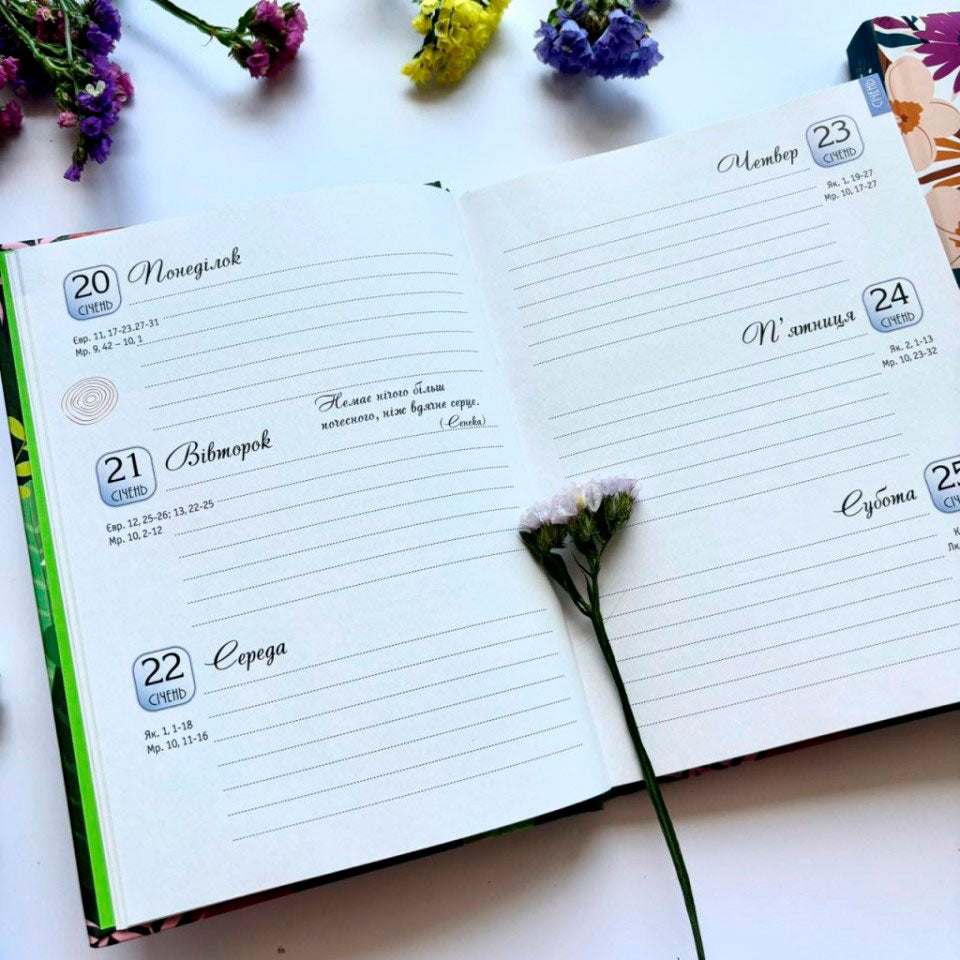 20
СІЧЕНЬ
Понеділок
Євр. 11, 17-23.27-31
Мр. 9, 42 – 10, 1
Немає нічого більш
почесного, ніж вдячне серце.
(Сенека)
21
СІЧЕНЬ
Вівторок
Євр. 12, 25-26; 13, 22-25
Мр. 10, 2-12
22
СІЧЕНЬ
Середа
Як. 1, 1-18
Мр. 10, 11-16
СІЧЕНЬ
Четвер
23
СІЧЕНЬ
Як. 1, 19-27
Мр. 10, 17-27
П'ятниця
24
СІЧЕНЬ
Як. 2, 1-13
Мр. 10, 23-32
Субота
25